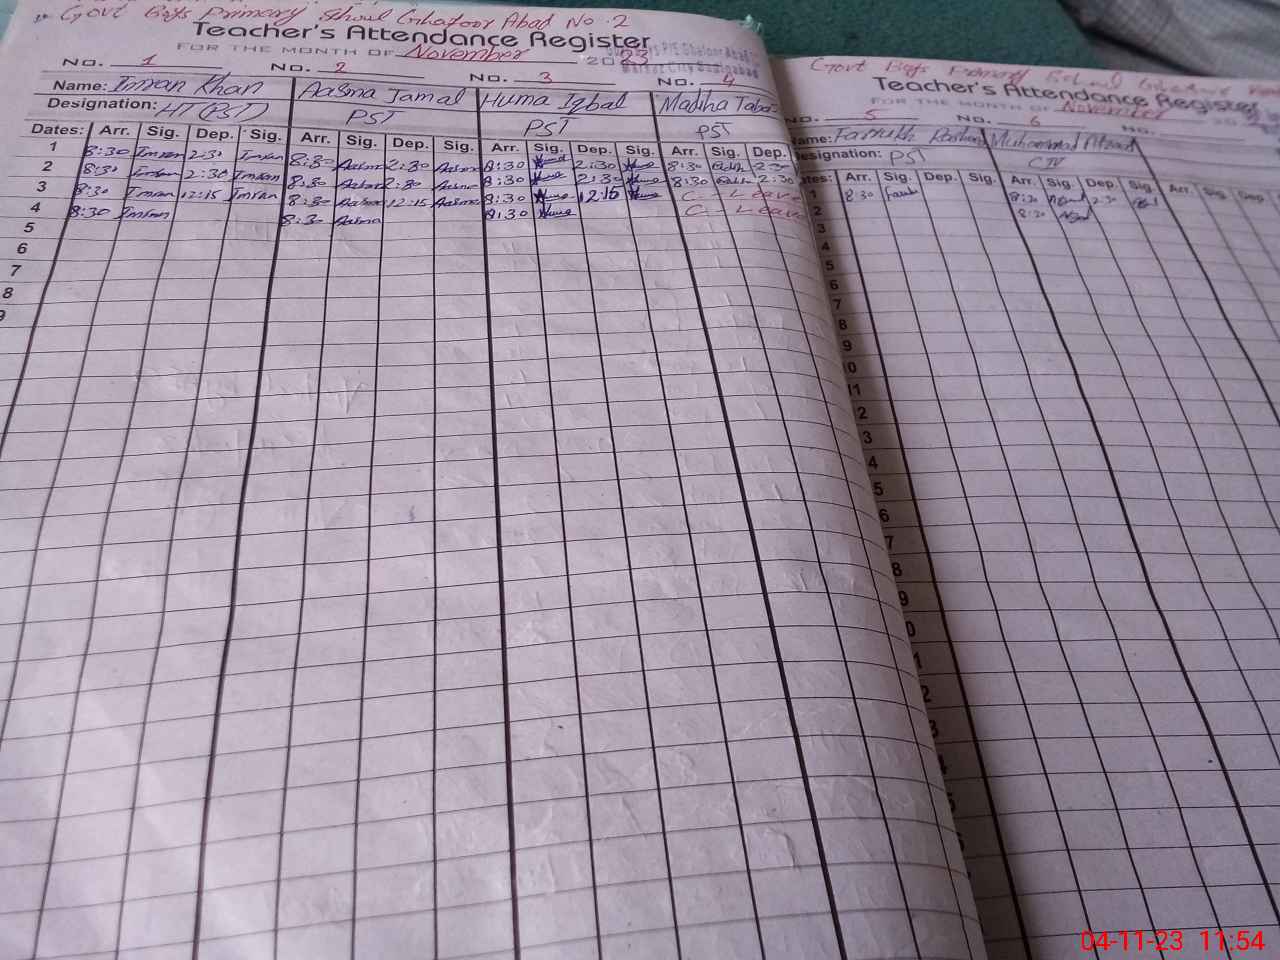 Govt Boys Primary School Ghafoor Abad No. 2
Teacher's Attendance Register
FOR THE MONTH OF November 2023
No. 1 No. 2 No. 3 No. 4
Name: Imran Khan Aasma Jamal Huma Iqbal Madiha
Designation: HT (PST) PST PST PST
Dates: Arr. Sig. Dep. Sig. Arr. Sig. Dep. Sig. Arr. Sig. Dep. Sig. Arr. Sig. Dep.
1 8:30 Imran 2:30 Imran 8:30 Aasma 2:30 Aasma 8:30 2:30 8:30 2:30
2 8:30 Imran 2:30 Imran 8:30 Aasma 2:30 Aasma 8:30 2:30 8:30 2:30
3 8:30 Imran 12:15 Imran 8:30 Aasma 12:15 Aasma 8:30 Huma 12:15 Huma C - Leave
4 8:30 Imran 8:30 Aasma 8:30 Huma C - Leave
5
6
7
8
9
Govt Boys Primary School
Teacher's Attendance Register
FOR THE MONTH OF November
No. 5 No. 6 No.
Name: Farrukh Muhammad
Designation: PST CTI
Dates: Arr. Sig. Dep. Sig. Arr. Sig. Dep. Sig. Arr. Sig. Dep.
1 8:30 8:30 2:30
2 8:30
3
4
5
6
7
8
9
10
11
2
3
4
5
6
7
8
9
0
1
2
3
4
5
04-11-23 11:54